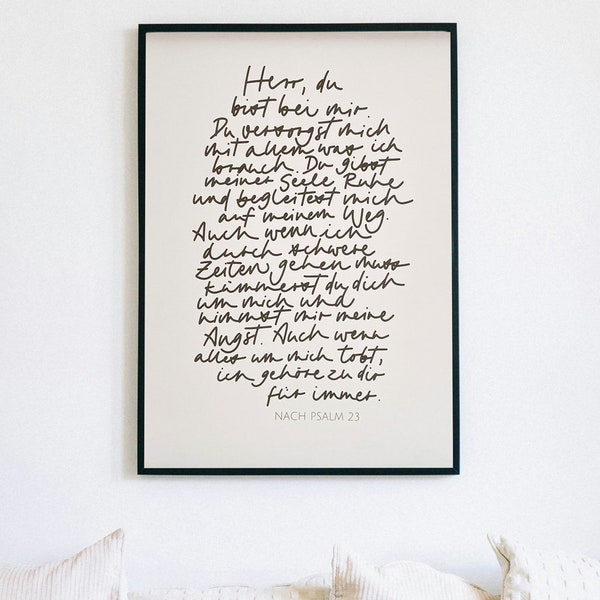 Herr, du
bist bei mir.
Du versorgst mich
mit allem was ich
brauch. Du gibst
meiner Seele Ruhe
und begleitest mich
auf meinem Weg.
Auch wenn ich
durch schwere
Zeiten gehen muss
kümmerst du dich
um mich und
nimmst mir meine
Angst. Auch wenn
alles um mich tobt,
ich gehöre zu dir
für immer.
NACH PSALM 23